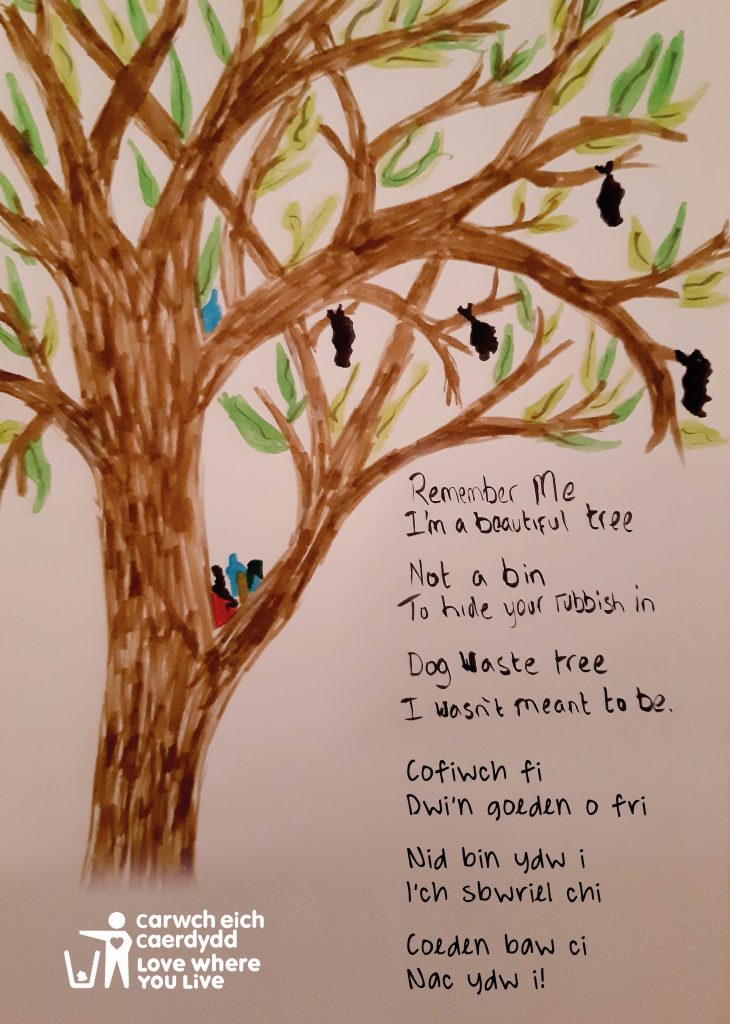 Remember Me
I'm a beautiful tree
Not a bin
To hide your rubbish in
Dog Waste tree
I wasn't meant to be.
Cofiwch fi
Dwi'n goeden o fri
Nid bin ydw i
I'ch sbwriel chi
Coeden baw ci
Nac ydw i!
carwch eich
caerdydd
Love where
you Live